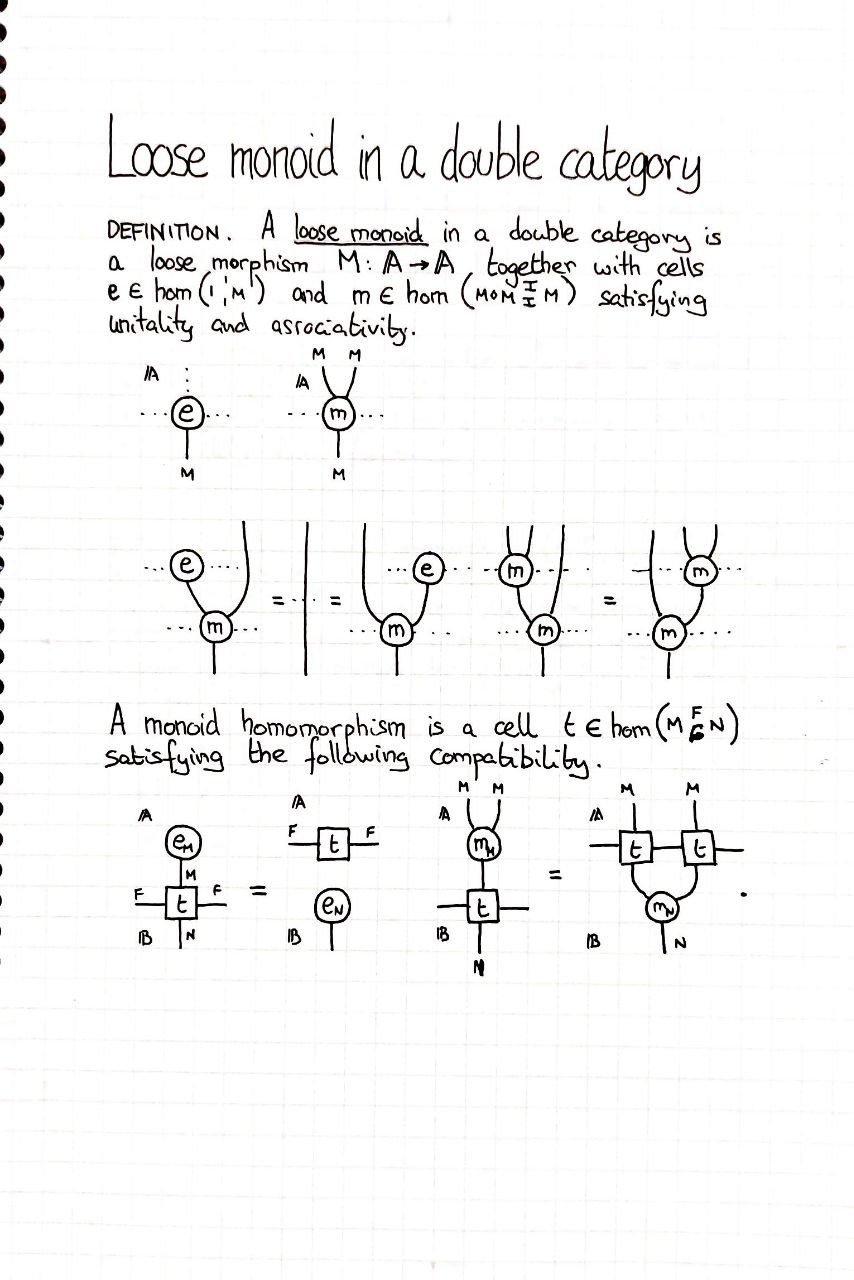 Loose monoid in a double category
DEFINITION. A loose monoid in a double category is
a loose morphism M: 𝔸→𝔸, together with cells
e ∈ hom (I I I M) and m ∈ hom (M∘M I I M) satisfying
unitality and associativity.
M M
𝔸 𝔸
e m
M M
e e m m
= =
m m m = m
A monoid homomorphism is a cell t ∈ hom (M F G N)
satisfying the following compatibility.
M M M M
𝔸 𝔸 𝔸 𝔸
e_M F t F m_M t t
M = =
F t F e_N t m_N
𝔹 N 𝔹 𝔹 𝔹 N
N